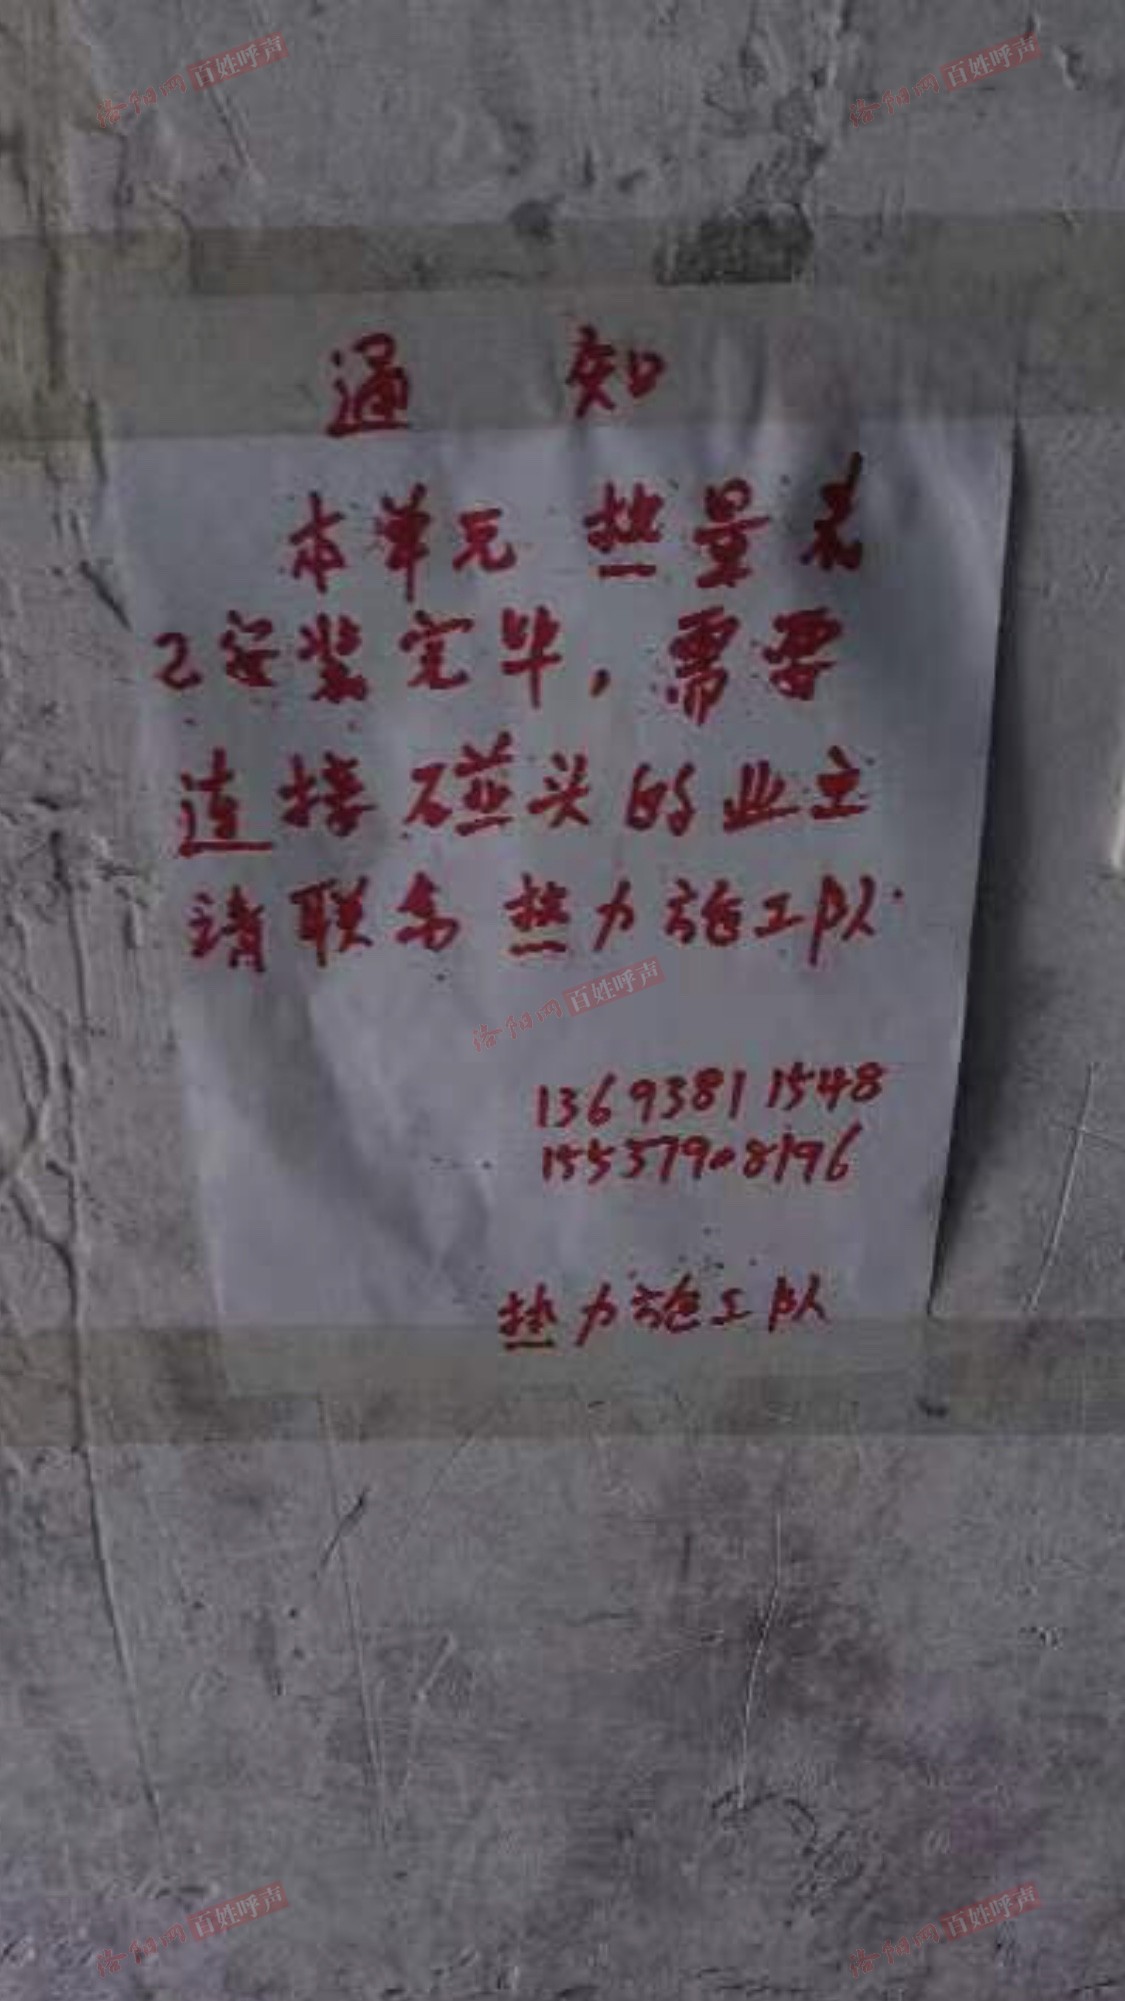 洛阳网 百姓呼声
洛阳网 百姓呼声
通 知
本单元 热量表
已安装完毕，需要
连接碰头的业主
请联系 热力施工队.
洛阳网 百姓呼声
13693811548
15537908196
热力施工队
洛阳网 百姓呼声
洛阳网 百姓呼声